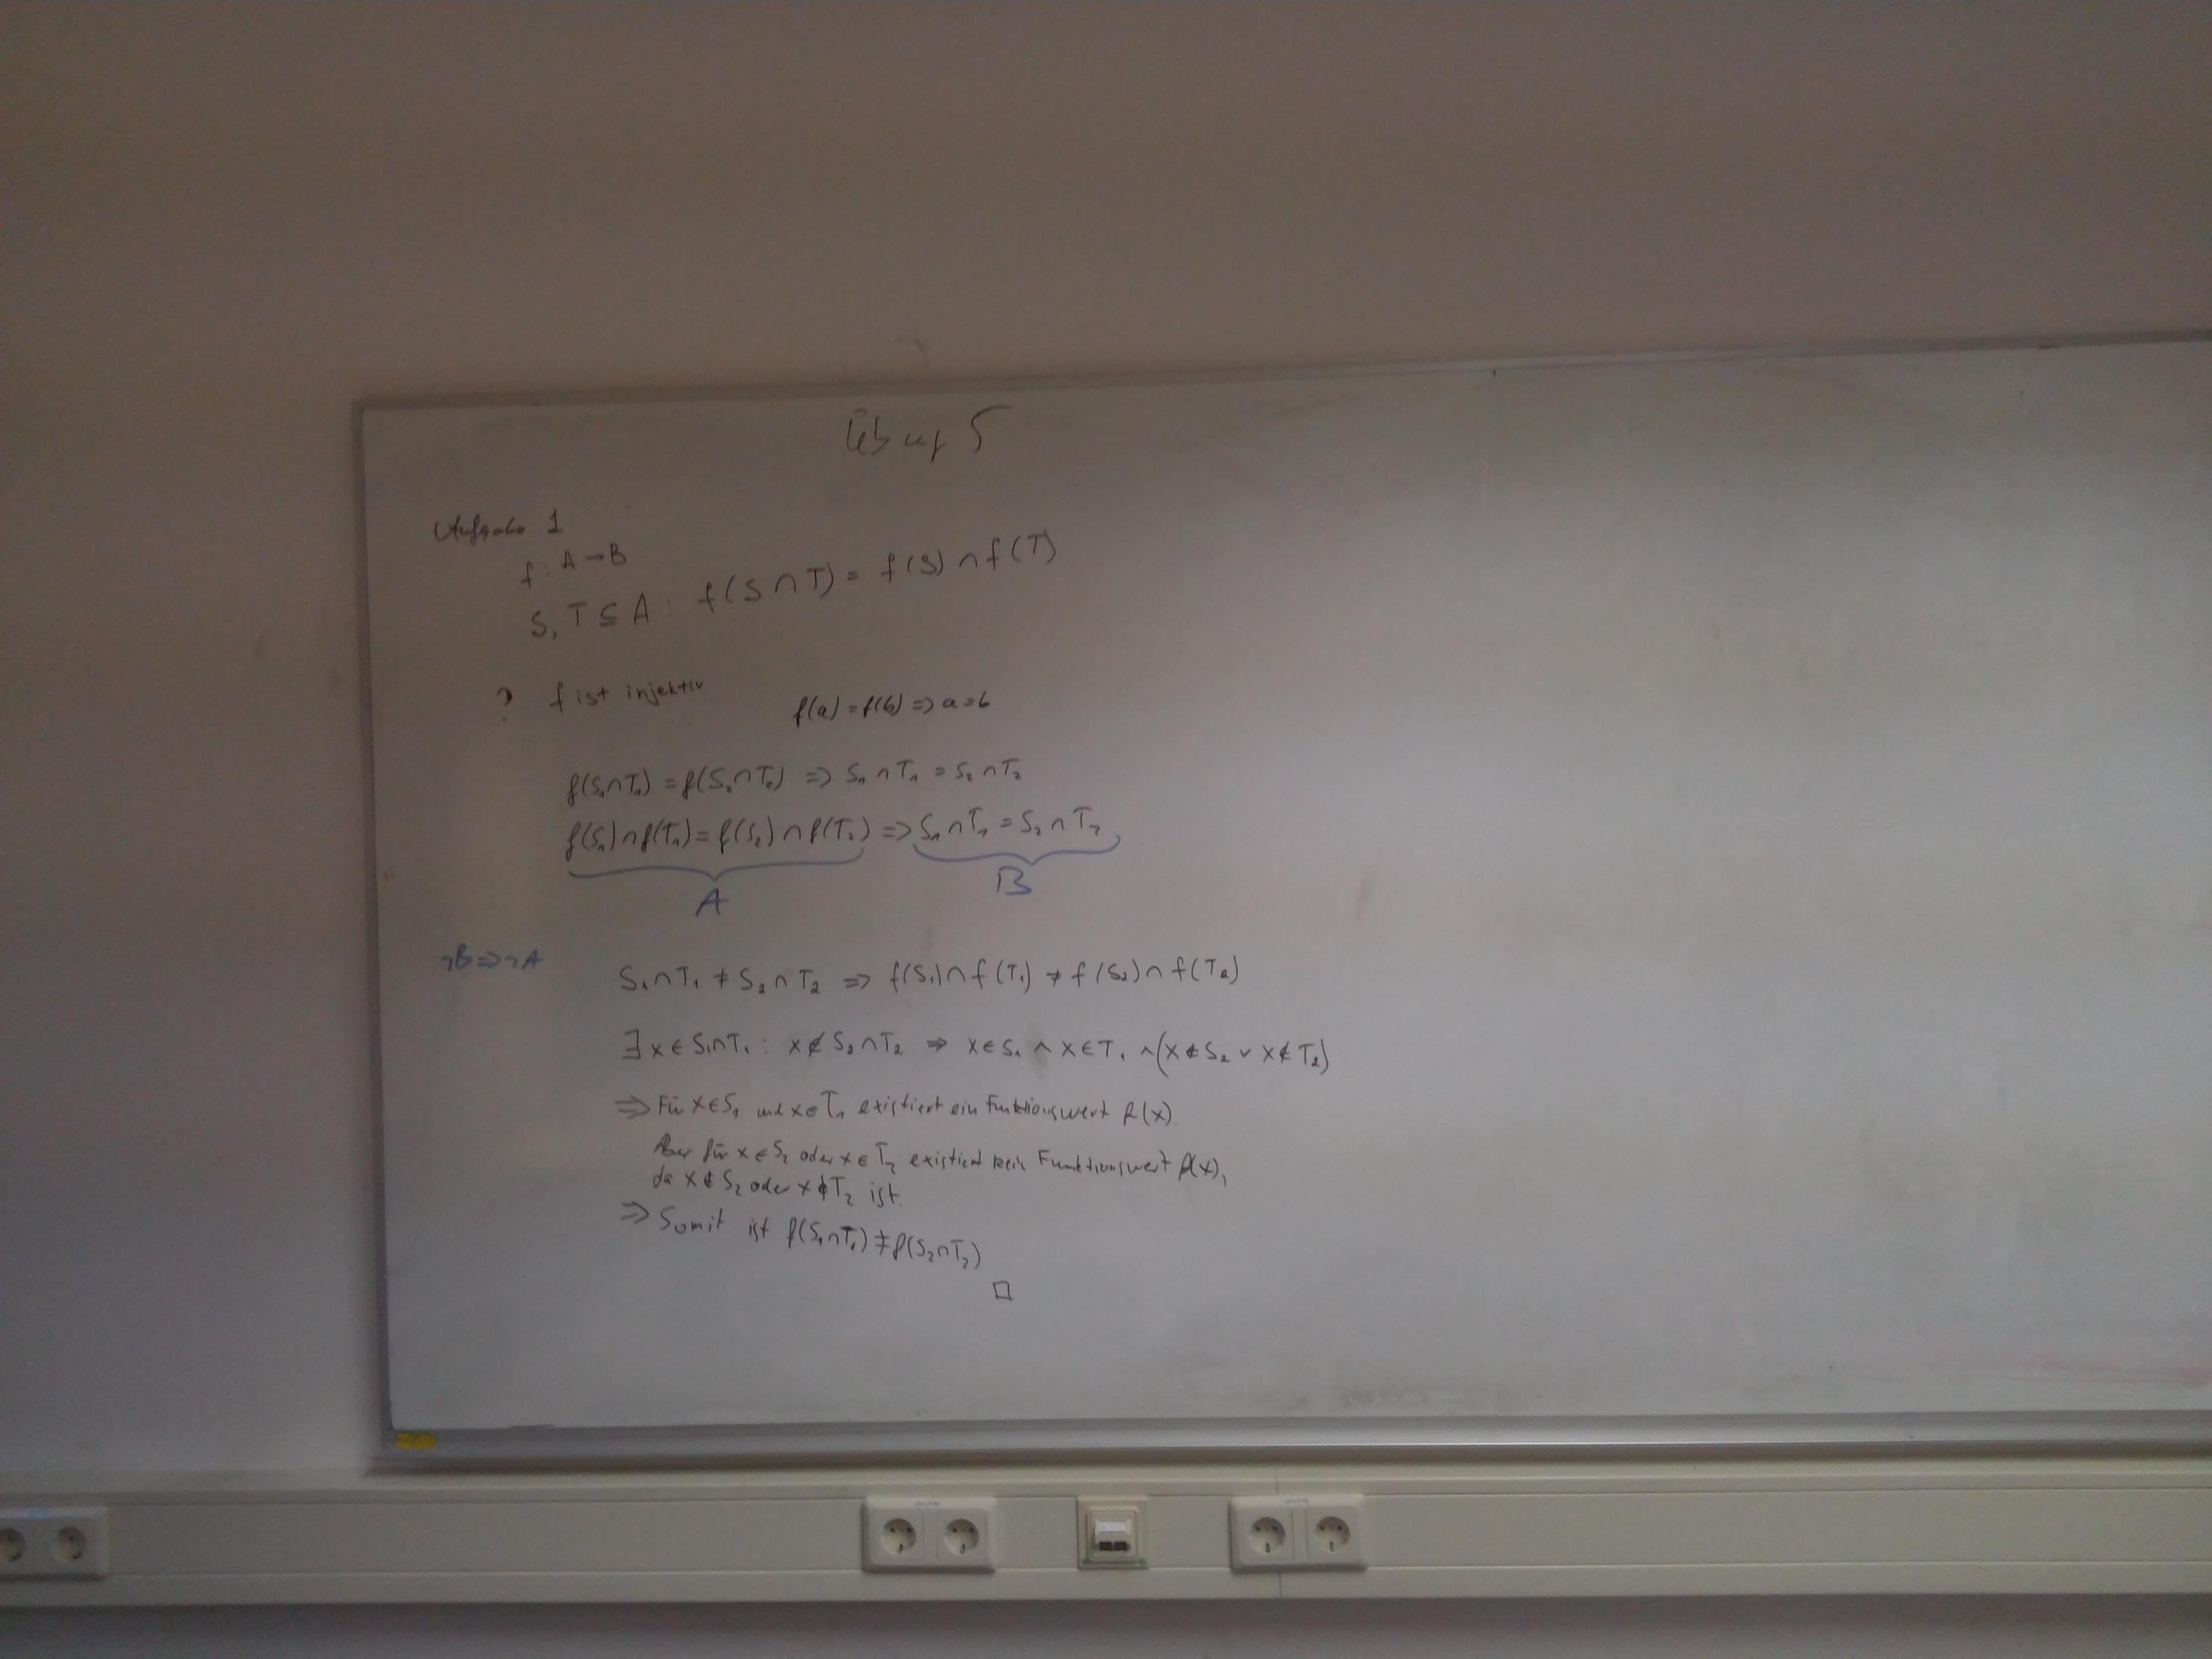 Übung 5
Aufgabe 1
f: A → B
S, T ⊆ A : f(S ∩ T) = f(S) ∩ f(T)
? f ist injektiv
f(a) = f(b) => a = b
f(S₁∩T₁) = f(S₂∩T₂) => S₁ ∩ T₁ = S₂ ∩ T₂
f(S₁) ∩ f(T₁) = f(S₂) ∩ f(T₂) => S₁ ∩ T₁ = S₂ ∩ T₂
A B
¬B => ¬A
S₁ ∩ T₁ ≠ S₂ ∩ T₂ => f(S₁) ∩ f(T₁) ≠ f(S₂) ∩ f(T₂)
∃ x ∈ S₁∩T₁ : x ∉ S₂ ∩ T₂ => x ∈ S₁ ∧ x ∈ T₁ ∧ (x ∉ S₂ ∨ x ∉ T₂)
=> Für x ∈ S₁ und x ∈ T₁ existiert ein Funktionswert f(x).
Aber für x ∈ S₂ oder x ∈ T₂ existiert kein Funktionswert f(x),
da x ∉ S₂ oder x ∉ T₂ ist.
=> Somit ist f(S₁∩T₁) ≠ f(S₂∩T₂)
□